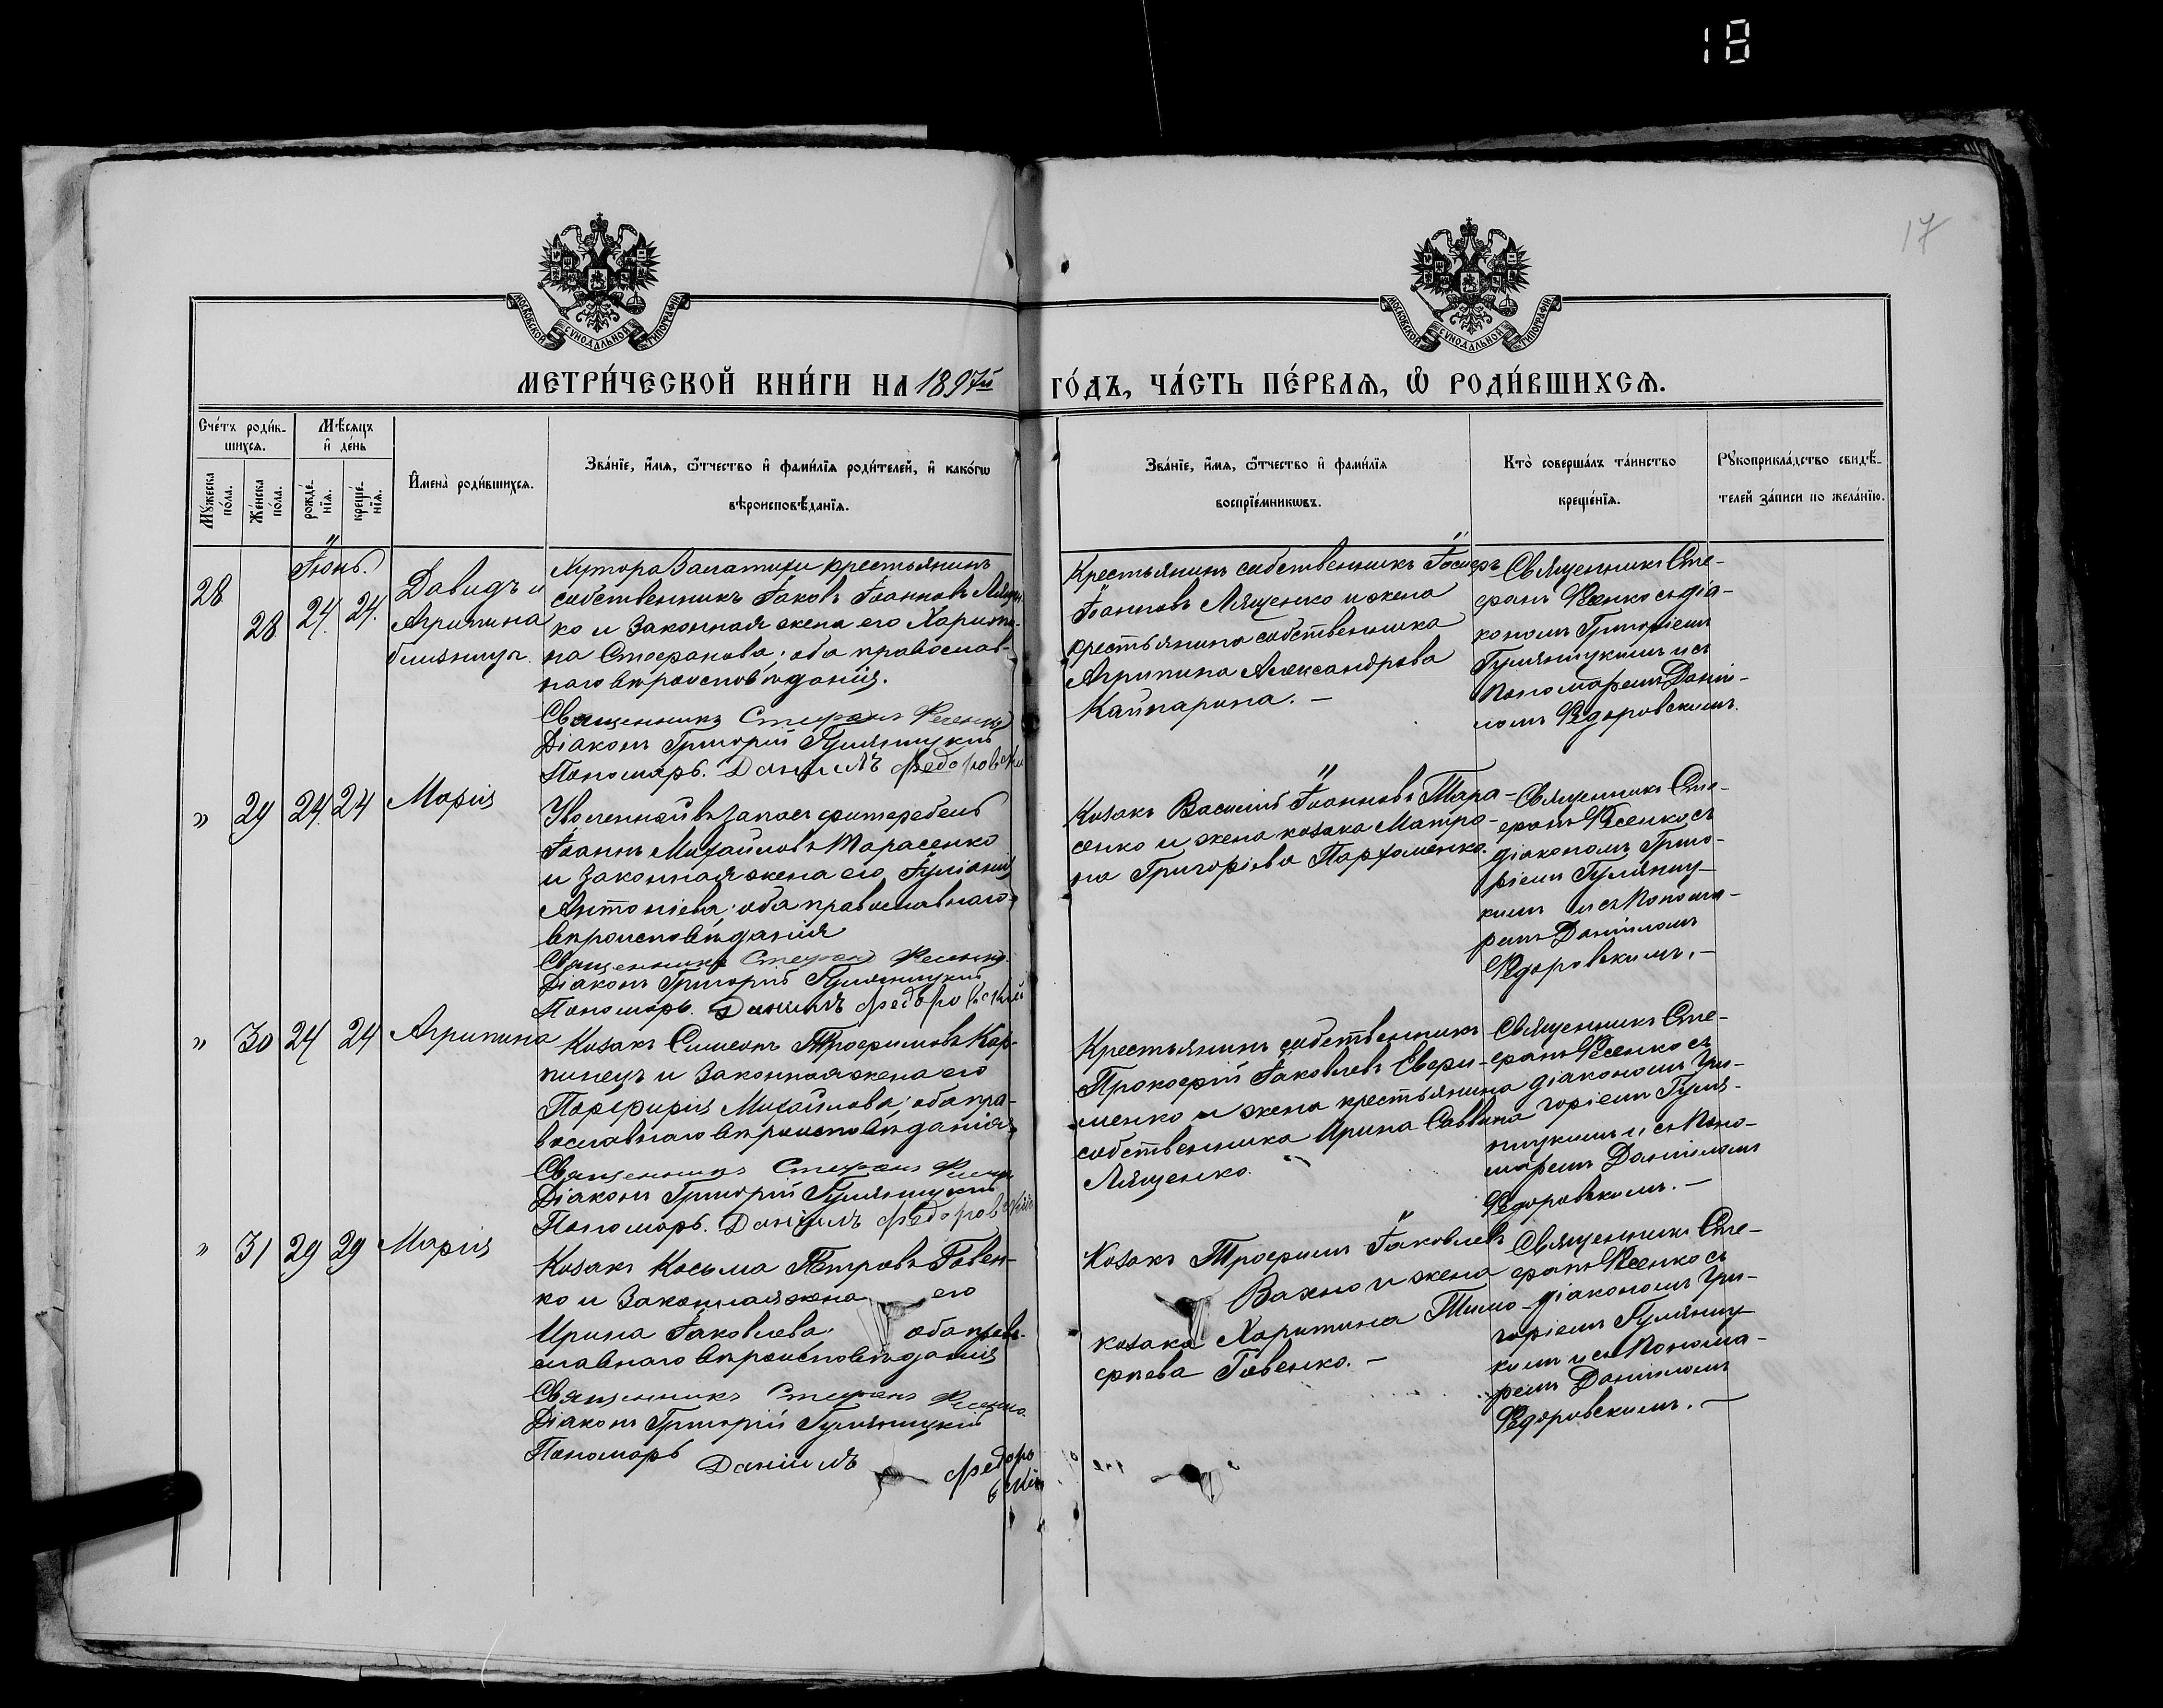 18
17
МОСКОВСКОЙ СУНОДАЛЬНОЙ ТИПОГРАФІИ
МОСКОВСКОЙ СУНОДАЛЬНОЙ ТИПОГРАФІИ
МЕТРИ́ЧЕСКОЙ КНИ́ГИ НА 1897й ГО́ДЪ, ЧА́СТЬ ПЕ́РВАЯ, Ѿ РОДИ́ВШИХСЯ.
Сче́тъ роди́в-
шихся.
Мѣсяцъ
и де́нь
Му́жеска по́ла.
Же́нска по́ла.
рожде́-
нія.
креще́-
нія.
Имена̀ роди́вшихся.
Зва́ніе, и́мя, ѻ҆́тчество и фами́лія роди́телей, и како́гѡ
вѣроисповѣ́данія.
Зва́ніе, и́мя, ѻ҆́тчество и фами́лія
воспріе́мникѡвъ.
Кто̀ соверша́лъ та́инство
креще́нія.
Рꙋкоприкла́дство свидѣ́-
телей за́писи по жела́нію.
Іюнь.
28
28
24.
24.
Давидъ и
Агрипина
близнецы.
Хутора крестьянинъ
собственникъ Іаковъ Іоанновъ Лящен-
ко и законная жена его Харити-
на Стефанова; оба православ-
наго вѣроисповѣданія.
Священникъ Стефанъ Фесенко
Діаконъ Григорій Гуляницкій
Пономарь. Даніилъ Федоровскій
Крестьянинъ собственникъ Іосифъ
Іоанновъ Лященко и жена
крестьянина собственника
Агрипина Александрова
Кайпарина. —
Священникъ Сте-
фанъ Фесенко съ діа-
кономъ Григоріемъ
Гуляницкимъ и съ
пономаремъ Даніи-
ломъ Федоровскимъ.
"
29
24.
24
Марія
Уволенный въ запасъ фитфебель
Іоаннъ Михайловъ Тарасенко
и законная жена его Іуліанія
Антоніева; оба православнаго
вѣроисповѣданія
Священникъ Стефанъ Фесенко.
Діаконъ Григорій Гуляницкій
Пономарь. Даніилъ Федоровскій
Козакъ Василій Іоанновъ Тара-
сенко и жена козака Матро-
на Григоріева Пархоменко.
Священникъ Сте-
фанъ Фесенко съ
діакономъ Григо-
ріемъ Гуляниц-
кимъ и съ понома-
ремъ Даніиломъ
Федоровскимъ. —
"
30
24
24
Агрипина
Козакъ Симеонъ Трофимовъ Кор-
пинецъ и законная жена его
Порфирія Михайлова; оба пра-
вославнаго вѣроисповѣданія
Священникъ Стефанъ Фесенко
Діаконъ Григорій Гуляницкій
Пономарь. Даніилъ Федоровскій
Крестьянинъ собственникъ
Прокофій Іаковлевъ Ефри-
менко и жена крестьянина
собственника Ирина Саввина
Лященко.
Священникъ Сте-
фанъ Фесенко съ
діакономъ Гри-
горіемъ Гуля-
ницкимъ и съ поно-
маремъ Даніиломъ
Федоровскимъ. —
"
31
29
29
Марія
Козакъ Косьма Петровъ Говен-
ко и законная жена его
Ирина Іаковлева; оба право-
славнаго вѣроисповѣданія
Священникъ Стефанъ Фесенко.
Діаконъ Григорій Гуляницкій
Пономарь Даніилъ Федоро
вскій
Козакъ Трофимъ Іаковлевъ
Вахно и жена
козака Харитина Тимо-
феева Говенко. —
Священникъ Сте-
фанъ Фесенко съ
діакономъ Гри-
горіемъ Гуляниц-
кимъ и съ понома-
ремъ Даніиломъ
Федоровскимъ. —